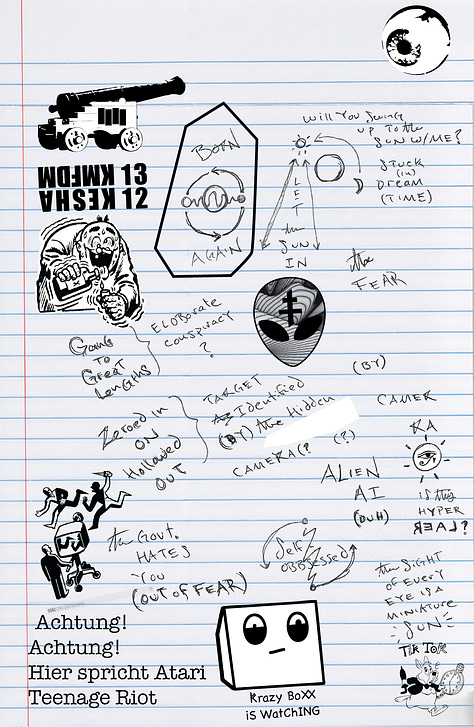 Will You Swing
up To the
SUN W/ME?
BORN
AGAIN
STUCK
(IN)
DREAM
(TIME)
LET
the
SUN
IN
KMFDM 13
KESHA 12
the
FEAR
ELOBorate
conspiracy
?
Going
TO
Great
Lengths
TARGET
Identified
(BY) the Hidden
CAMERA(?
Zeroed in
ON
Hollowed
OUT
(BY)
CAMER
RA
(?)
ALIEN
AI
(DUH)
is this
HYPER
REAL?
the Govt.
HATES
You
(OUT OF FEAR)
Self
OBSESSED
the SIGHT
OF EVERY
EYE IS A
MINIATURE
SUN
Tik Tok
Achtung!
Achtung!
Hier spricht Atari
Teenage Riot
Krazy BoXX
is WatchING